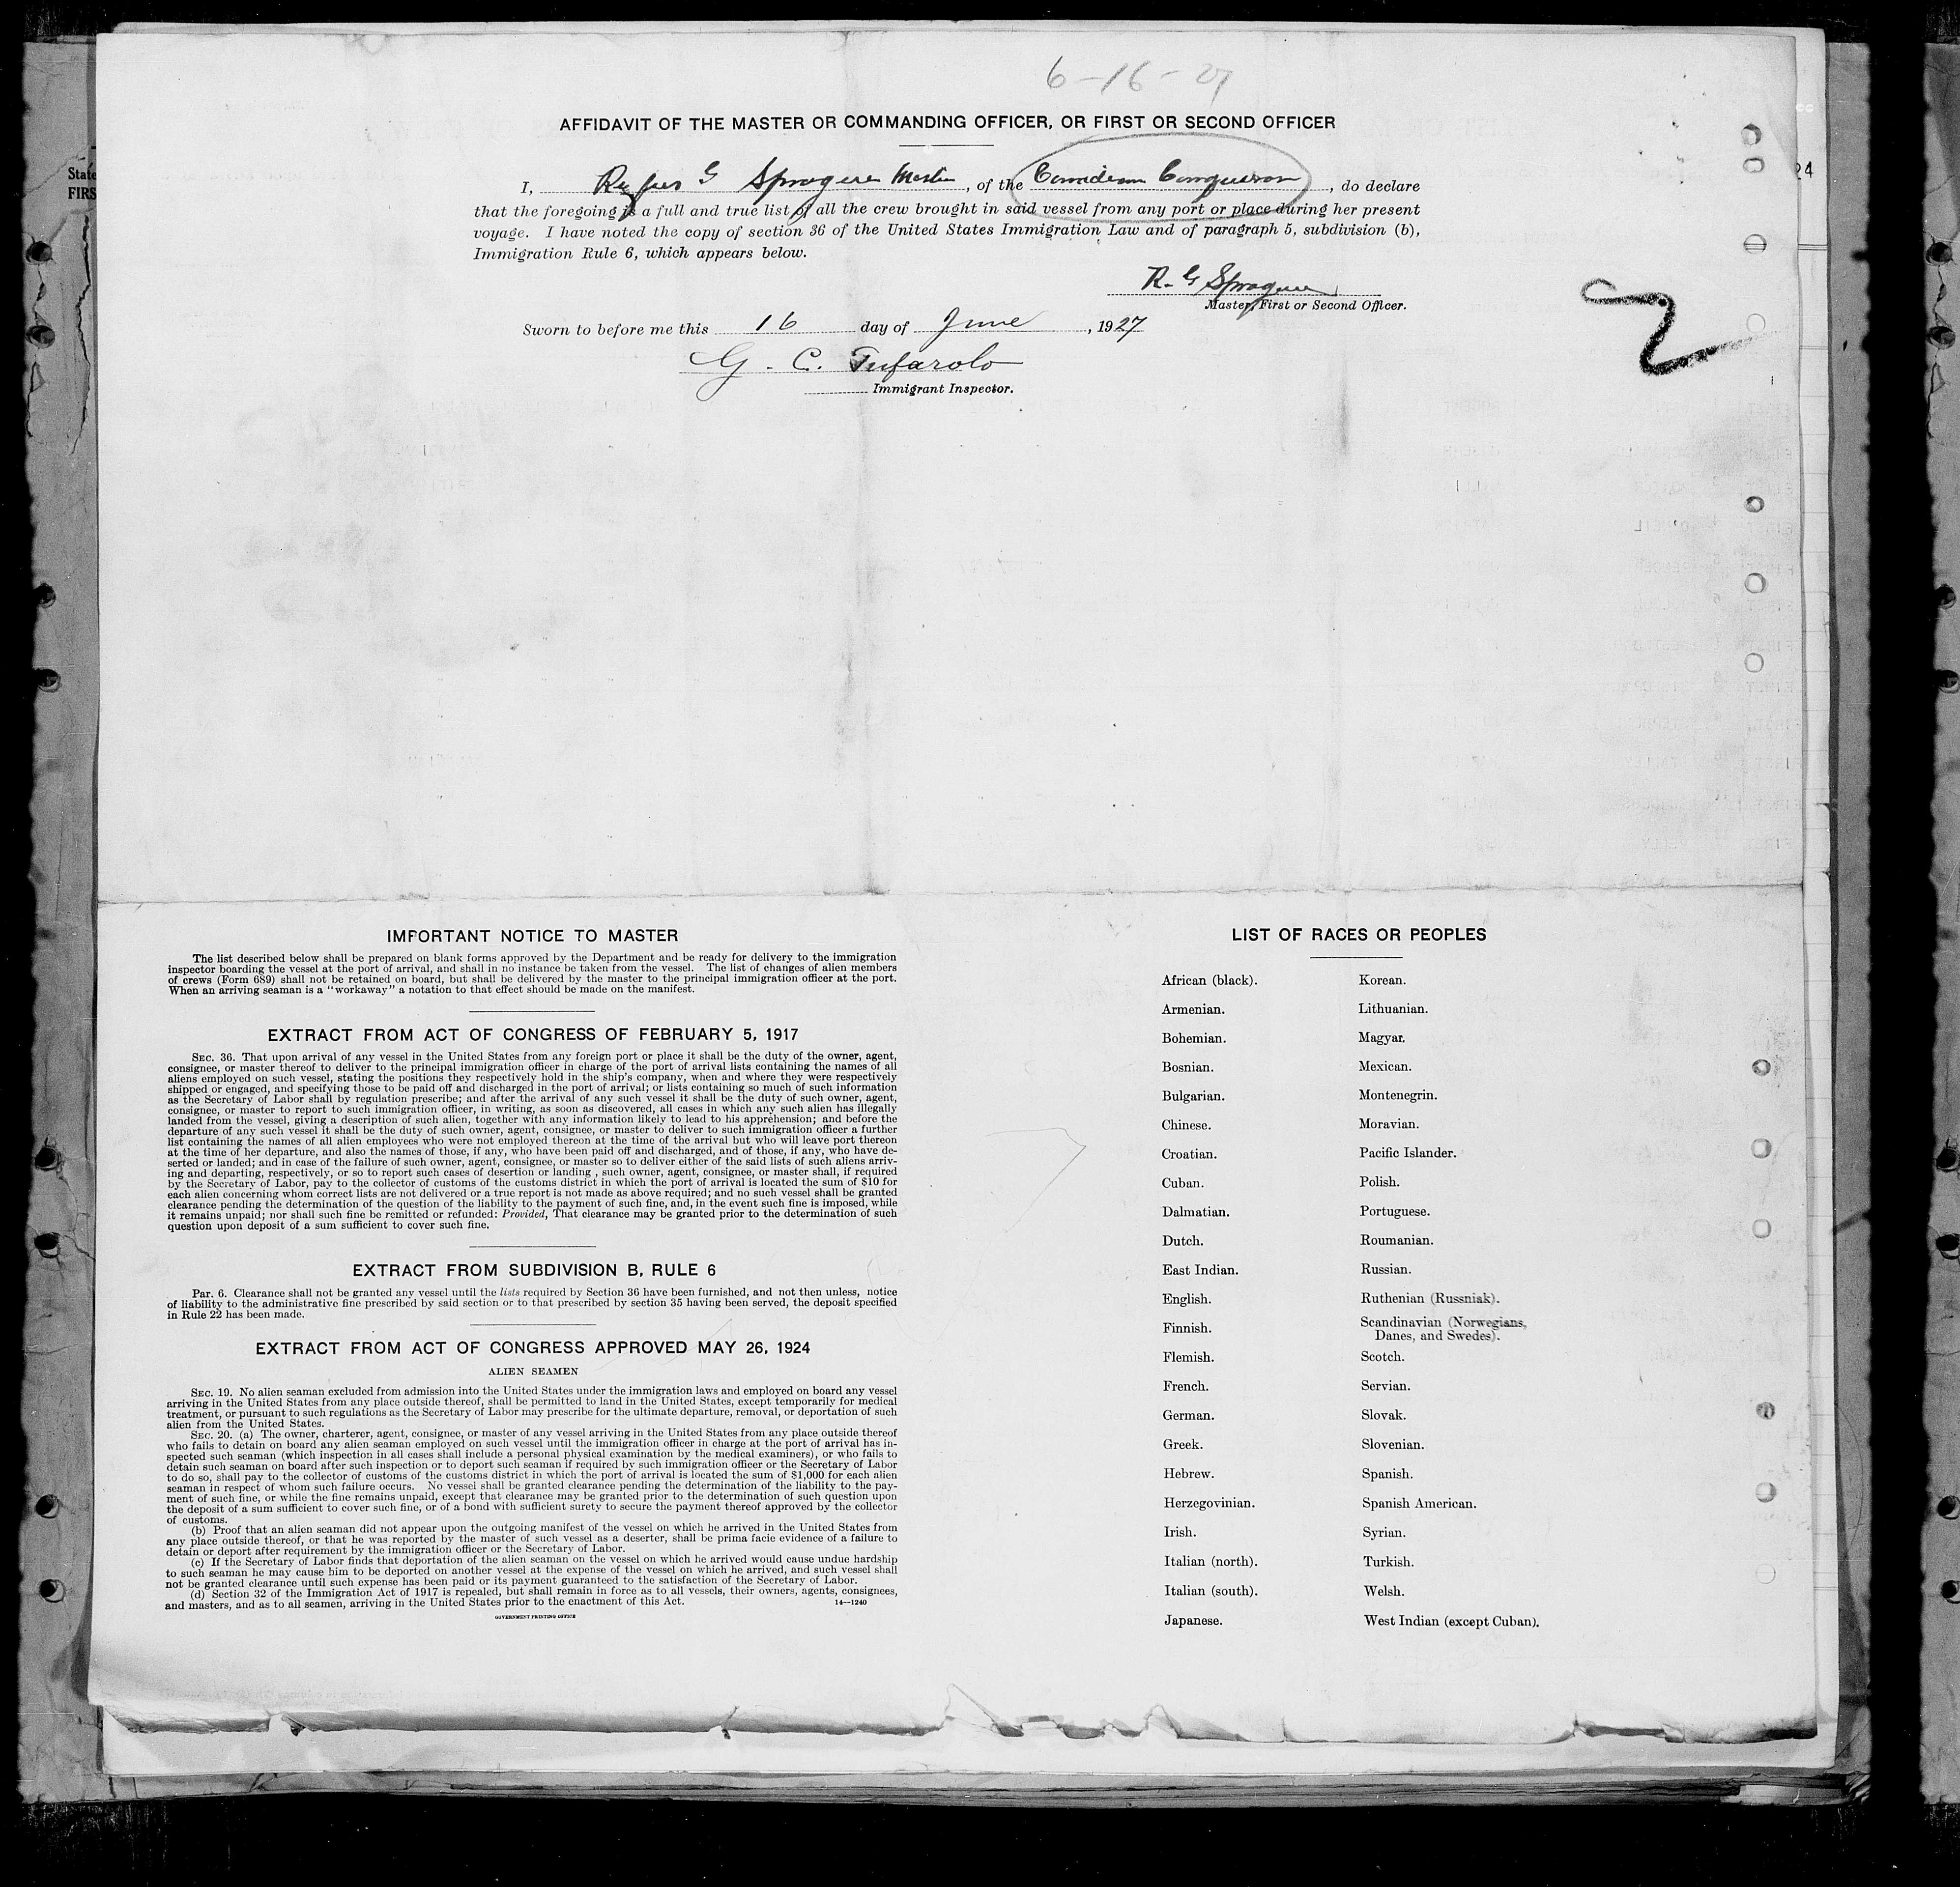 6-16-27
AFFIDAVIT OF THE MASTER OR COMMANDING OFFICER, OR FIRST OR SECOND OFFICER
State
FIRS
24
I, Rufus G Sprague Master, of the Canadian Conqueror, do declare
that the foregoing is a full and true list of all the crew brought in said vessel from any port or place during her present
voyage. I have noted the copy of section 36 of the United States Immigration Law and of paragraph 5, subdivision (b),
Immigration Rule 6, which appears below.
R. G Sprague
Master, First or Second Officer.
Sworn to before me this 16 day of June, 1927
G. C. Tufarolo
Immigrant Inspector.
2
IMPORTANT NOTICE TO MASTER
The list described below shall be prepared on blank forms approved by the Department and be ready for delivery to the immigration
inspector boarding the vessel at the port of arrival, and shall in no instance be taken from the vessel. The list of changes of alien members
of crews (Form 689) shall not be retained on board, but shall be delivered by the master to the principal immigration officer at the port.
When an arriving seaman is a "workaway" a notation to that effect should be made on the manifest.
EXTRACT FROM ACT OF CONGRESS OF FEBRUARY 5, 1917
SEC. 36. That upon arrival of any vessel in the United States from any foreign port or place it shall be the duty of the owner, agent,
consignee, or master thereof to deliver to the principal immigration officer in charge of the port of arrival lists containing the names of all
aliens employed on such vessel, stating the positions they respectively hold in the ship's company, when and where they were respectively
shipped or engaged, and specifying those to be paid off and discharged in the port of arrival; or lists containing so much of such information
as the Secretary of Labor shall by regulation prescribe; and after the arrival of any such vessel it shall be the duty of such owner, agent,
consignee, or master to report to such immigration officer, in writing, as soon as discovered, all cases in which any such alien has illegally
landed from the vessel, giving a description of such alien, together with any information likely to lead to his apprehension; and before the
departure of any such vessel it shall be the duty of such owner, agent, consignee, or master to deliver to such immigration officer a further
list containing the names of all alien employees who were not employed thereon at the time of the arrival but who will leave port thereon
at the time of her departure, and also the names of those, if any, who have been paid off and discharged, and of those, if any, who have de-
serted or landed; and in case of the failure of such owner, agent, consignee, or master so to deliver either of the said lists of such aliens arriv-
ing and departing, respectively, or so to report such cases of desertion or landing , such owner, agent, consignee, or master shall, if required
by the Secretary of Labor, pay to the collector of customs of the customs district in which the port of arrival is located the sum of $10 for
each alien concerning whom correct lists are not delivered or a true report is not made as above required; and no such vessel shall be granted
clearance pending the determination of the question of the liability to the payment of such fine, and, in the event such fine is imposed, while
it remains unpaid; nor shall such fine be remitted or refunded: Provided, That clearance may be granted prior to the determination of such
question upon deposit of a sum sufficient to cover such fine.
EXTRACT FROM SUBDIVISION B, RULE 6
Par. 6. Clearance shall not be granted any vessel until the lists required by Section 36 have been furnished, and not then unless, notice
of liability to the administrative fine prescribed by said section or to that prescribed by section 35 having been served, the deposit specified
in Rule 22 has been made.
EXTRACT FROM ACT OF CONGRESS APPROVED MAY 26, 1924
ALIEN SEAMEN
SEC. 19. No alien seaman excluded from admission into the United States under the immigration laws and employed on board any vessel
arriving in the United States from any place outside thereof, shall be permitted to land in the United States, except temporarily for medical
treatment, or pursuant to such regulations as the Secretary of Labor may prescribe for the ultimate departure, removal, or deportation of such
alien from the United States.
SEC. 20. (a) The owner, charterer, agent, consignee, or master of any vessel arriving in the United States from any place outside thereof
who fails to detain on board any alien seaman employed on such vessel until the immigration officer in charge at the port of arrival has in-
spected such seaman (which inspection in all cases shall include a personal physical examination by the medical examiners), or who fails to
detain such seaman on board after such inspection or to deport such seaman if required by such immigration officer or the Secretary of Labor
to do so, shall pay to the collector of customs of the customs district in which the port of arrival is located the sum of $1,000 for each alien
seaman in respect of whom such failure occurs. No vessel shall be granted clearance pending the determination of the liability to the pay-
ment of such fine, or while the fine remains unpaid, except that clearance may be granted prior to the determination of such question upon
the deposit of a sum sufficient to cover such fine, or of a bond with sufficient surety to secure the payment thereof approved by the collector
of customs.
(b) Proof that an alien seaman did not appear upon the outgoing manifest of the vessel on which he arrived in the United States from
any place outside thereof, or that he was reported by the master of such vessel as a deserter, shall be prima facie evidence of a failure to
detain or deport after requirement by the immigration officer or the Secretary of Labor.
(c) If the Secretary of Labor finds that deportation of the alien seaman on the vessel on which he arrived would cause undue hardship
to such seaman he may cause him to be deported on another vessel at the expense of the vessel on which he arrived, and such vessel shall
not be granted clearance until such expense has been paid or its payment guaranteed to the satisfaction of the Secretary of Labor.
(d) Section 32 of the Immigration Act of 1917 is repealed, but shall remain in force as to all vessels, their owners, agents, consignees,
and masters, and as to all seamen, arriving in the United States prior to the enactment of this Act.
14—1240
GOVERNMENT PRINTING OFFICE
LIST OF RACES OR PEOPLES
African (black).
Armenian.
Bohemian.
Bosnian.
Bulgarian.
Chinese.
Croatian.
Cuban.
Dalmatian.
Dutch.
East Indian.
English.
Finnish.
Flemish.
French.
German.
Greek.
Hebrew.
Herzegovinian.
Irish.
Italian (north).
Italian (south).
Japanese.
Korean.
Lithuanian.
Magyar.
Mexican.
Montenegrin.
Moravian.
Pacific Islander.
Polish.
Portuguese.
Roumanian.
Russian.
Ruthenian (Russniak).
Scandinavian (Norwegians,
Danes, and Swedes).
Scotch.
Servian.
Slovak.
Slovenian.
Spanish.
Spanish American.
Syrian.
Turkish.
Welsh.
West Indian (except Cuban).